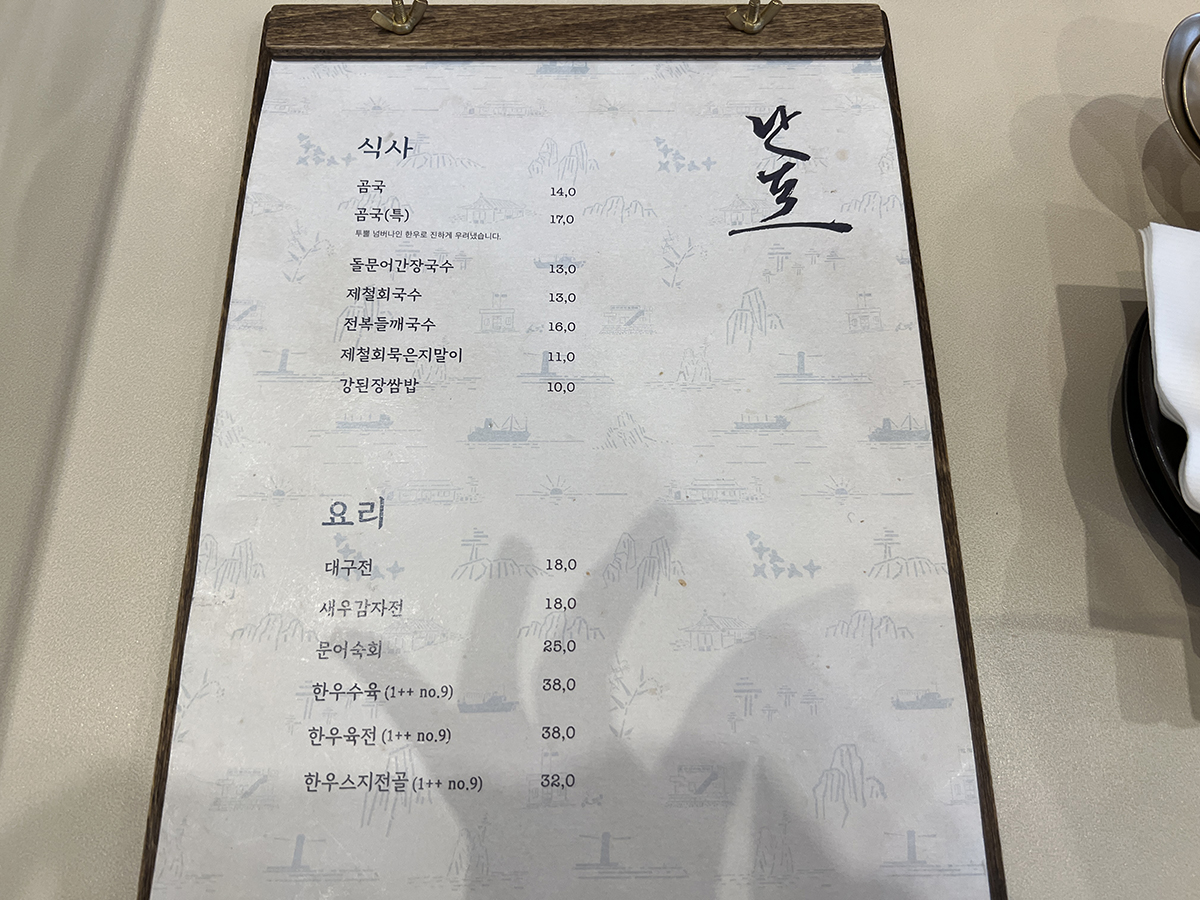 난포
식사
곰국 14,0
곰국(특) 17,0
투뿔 넘버나인 한우로 진하게 우려냈습니다.
돌문어간장국수 13,0
제철회국수 13,0
전복들깨국수 16,0
제철회묵은지말이 11,0
강된장쌈밥 10,0
요리
대구전 18,0
새우감자전 18,0
문어숙회 25,0
한우수육 (1++ no.9) 38,0
한우육전 (1++ no.9) 38,0
한우스지전골 (1++ no.9) 32,0